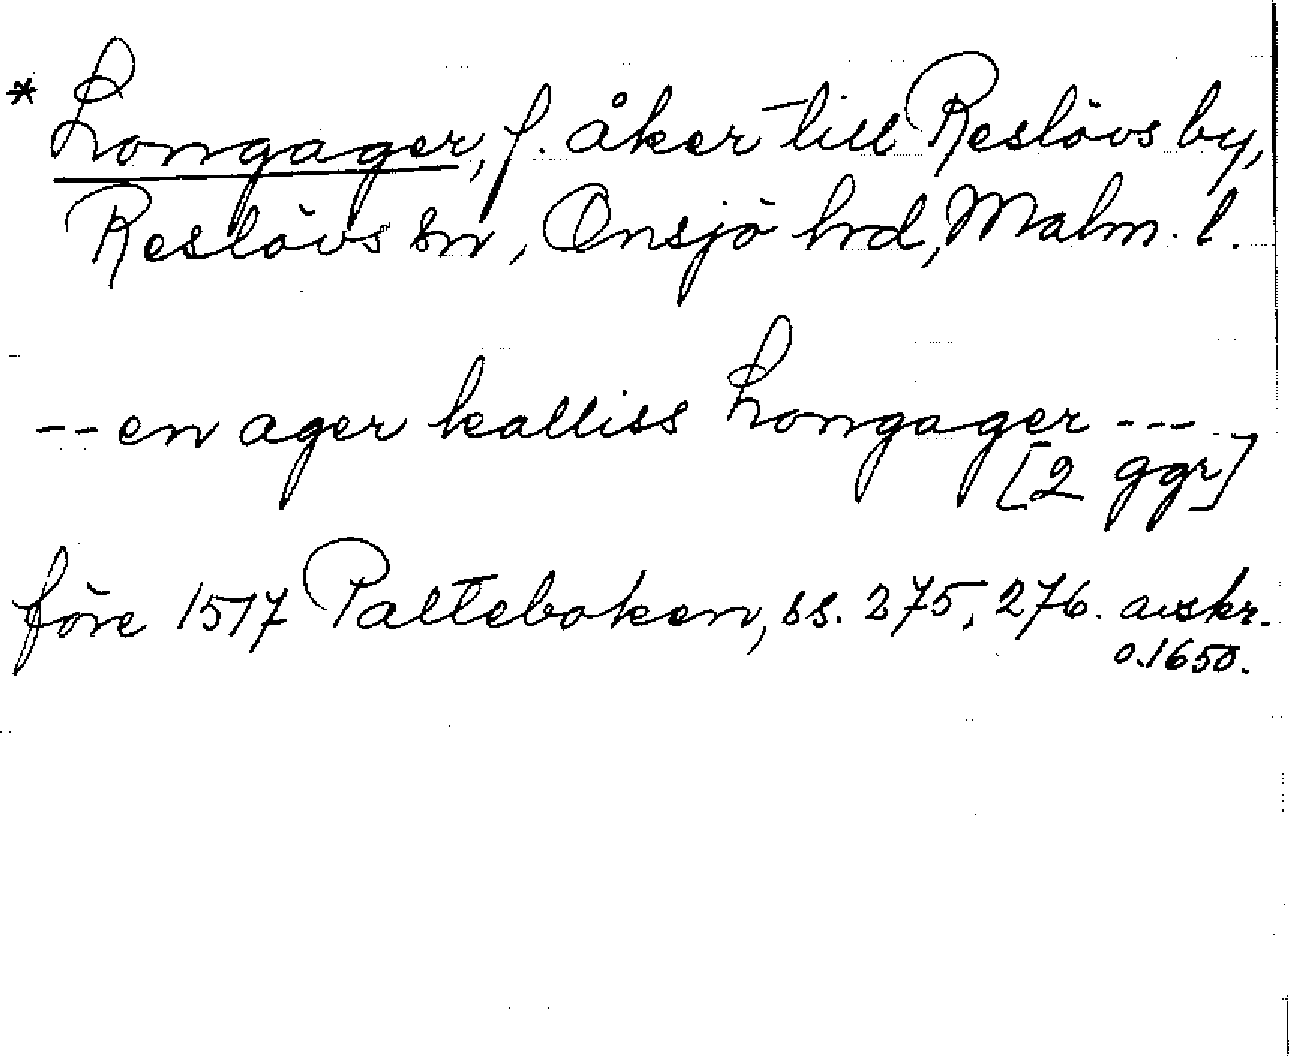 * Longager, f. åker till Reslövs by,
Reslövs sn, Onsjö hrd, Malm. l.
-- en ager kalliss Longager ---
[2 ggr]
före 1517 Palteboken, ss. 275, 276. avskr.
o. 1650.